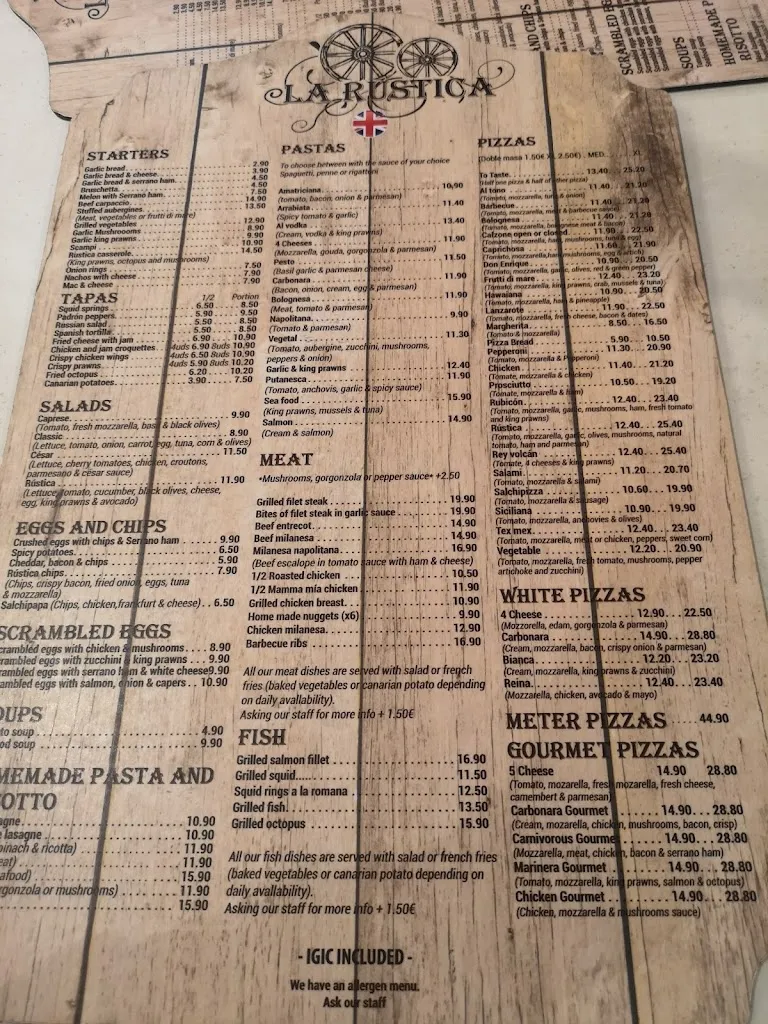 LA RUSTICA
STARTERS
Garlic bread 2.90
Garlic bread & cheese 3.90
Garlic bread & serrano ham 4.50
Bruschetta 4.50
Melon with Serrano ham 7.50
Beef carpaccio 14.90
Stuffed aubergines 13.50
(Meat, vegetables or frutti di mare)
Grilled vegetables 12.90
Garlic Mushrooms 8.90
Garlic king prawns 9.90
Scampi 10.90
Rustica casserole 14.50
(King prawns, octopus and mushrooms)
Onion rings 7.50
Nachos with cheese 7.90
Mac & cheese 7.90
TAPAS 1/2 Portion
Squid springs 6.50 8.50
Padrón peppers 5.90 9.50
Russian salad 5.50 8.50
Spanish tortilla 5.50 8.50
Fried cheese with jam 6.90 10.90
Chicken and jam croquettes 4uds 6.90 8uds 10.90
Crispy chicken wings 4uds 6.50 8uds 10.90
Crispy prawns 4uds 5.90 8uds 10.20
Fried octopus 6.20 10.20
Canarian potatoes 3.90 7.50
SALADS
Caprese 9.90
(Tomato, fresh mozzarella, basil & black olives)
Classic 8.90
(Lettuce, tomato, onion, carrot, egg, tuna, corn & olives)
César 11.50
(Lettuce, cherry tomatoes, chicken, croutons,
parmesano & césar sauce)
Rústica 11.90
(Lettuce, tomato, cucumber, black olives, cheese,
egg, king prawns & avocado)
EGGS AND CHIPS
Crushed eggs with chips & Serrano ham 9.90
Spicy potatoes 6.50
Cheddar, bacon & chips 5.90
Rústica chips 7.90
(Chips, crispy bacon, fried onion, eggs, tuna
& mozzarella)
Salchipapa (Chips, chicken,frankfurt & cheese) 6.50
SCRAMBLED EGGS
eggs with chicken & mushrooms 8.90
eggs with zucchini & king prawns 9.90
eggs with serrano ham & white cheese 9.90
eggs with salmon, onion & capers 10.90
soup 4.90
soup 9.90
PASTA AND
10.90
lasagne 10.90
& ricotta) 11.90
11.90
15.90
or mushrooms) 11.90
15.90
PASTAS
To choose between with the sauce of your choice
Spaguetti, penne or rigattoni
Amatriciana 10,90
(Tomato, bacon, onion & parmesan)
Arrabiata 11.40
(Spicy tomato & garlic)
Al vodka 13.40
(Cream, vodka & king prawns)
4 Cheeses 11.90
(Mozzarella, gouda, gorgonzola & parmesan)
Pesto 11.50
(Basil garlic & parmesan cheese)
Carbonara 11.90
(Bacon, onion, cream, egg & parmesan)
Bolognesa 11.90
(Meat, tomato & parmesan)
Napolitana 9.90
(Tomato & parmesan)
Vegetal 11.30
(Tomato, aubergine, zucchini, mushrooms,
peppers & onion)
Garlic & king prawns 12.40
Putanesca 11.90
(Tomato, anchovis, garlic & spicy sauce)
Sea food 15.90
(King prawns, mussels & tuna)
Salmon 14.90
(Cream & salmon)
MEAT
*Mushrooms, gorgonzola or pepper sauce* +2.50
Grilled filet steak 19.90
Bites of filet steak in garlic sauce 19.90
Beef entrecot 14.90
Beef milanesa 14.90
Milanesa napolitana 16.90
(Beef escalope in tomato sauce with ham & cheese)
1/2 Roasted chicken 10.50
1/2 Mamma mía chicken 11.90
Grilled chicken breast 10.90
Home made nuggets (x6) 9.90
Chicken milanesa 12.90
Barbecue ribs 16.90
All our meat dishes are served with salad or french
fries (baked vegetables or canarian potato depending
on daily availlability).
Asking our staff for more info + 1.50€
FISH
Grilled salmon fillet 16.90
Grilled squid 11.50
Squid rings a la romana 12.50
Grilled fish 13.50
Grilled octopus 15.90
All our fish dishes are served with salad or french fries
(baked vegetables or canarian potato depending on
daily availlability).
Asking our staff for more info + 1.50€
PIZZAS
(Doble masa 1.50€ XL 2.50€) MED. XL
To Taste 13.40 25.20
(Half one pizza & half of other pizza)
Al tono 11.40 21.20
(Tomato, mozzarella, tuna & onion)
Barbecue 11.40 21.20
Bolognesa 11.40 21.20
Calzone open or closed 11.90 22.50
Caprichosa 11.60 21.90
Don Enrique 10.90 20.50
(Tomato, mozzarella, garlic, olives, red & green pepper)
Frutti di mare 12.40 23.20
(Tomato, mozzarella, king prawns, crab, mussels & tuna)
Hawaiana 10.90 20.50
(Tomato, mozzarella, ham & pineapple)
Lanzarote 11.90 22.50
(Tomato, mozzarella, fresh cheese, bacon & dates)
Margherita 8.50 16.50
(Tomato & mozzarella)
Pizza Bread 5.90 10.50
Pepperoni 11.30 20.90
(Tomato, mozzarella & Pepperoni)
Chicken 11.40 21.20
(Tomate, mozzarella & chicken)
Prosciutto 10.50 19.20
(Tomate, mozzarella & ham)
Rubicón 12.40 23.40
(Tomato, mozzarella, garlic, mushrooms, ham, fresh tomato
and king prawns)
Rústica 12.40 25.40
(Tomato, mozzarella, garlic, olives, mushrooms, natural
tomato, ham and parmesan)
Rey volcán 12.40 25.40
(Tomate, 4 cheeses & king prawns)
Salami 11.20 20.70
(Tomato, mozzarella & salami)
Salchipizza 10.60 19.90
(Tomato, mozzarella & sausage)
Siciliana 10.90 19.90
(Tomato, mozzarella, anchovies & olives)
Tex mex 12.40 23.40
(Tomato, mozzarella, meat or chicken, peppers, sweet corn)
Vegetable 12.20 20.90
(Tomato, mozzarella, fresh tomato, mushrooms, pepper
artichoke and zucchini)
WHITE PIZZAS
4 Cheese 12.90 22.50
(Mozzorella, edam, gorgonzola & parmesan)
Carbonara 14.90 28.80
(Cream, mozzarella, bacon, crispy onion & parmesan)
Bianca 12.20 23.20
(Cream, mozzarella, king prawns & zucchini)
Reina 12.40 23.40
(Mozzarella, chicken, avocado & mayo)
METER PIZZAS 44.90
GOURMET PIZZAS
5 Cheese 14.90 28.80
(Tomato, mozarella, fresh mozarella, fresh cheese,
camembert & parmesan)
Carbonara Gourmet 14.90 28.80
(Cream, mozarella, chicken, mushrooms, bacon, crisp)
Carnivorous Gourmet 14.90 28.80
(Mozzarella, meat, chicken, bacon & serrano ham)
Marinera Gourmet 14.90 28.80
(Tomato, mozzarella, king prawns, salmon & octopus)
Chicken Gourmet 14.90 28.80
(Chicken, mozzarella & mushrooms sauce)
- IGIC INCLUDED -
We have an allergen menu.
Ask our staff